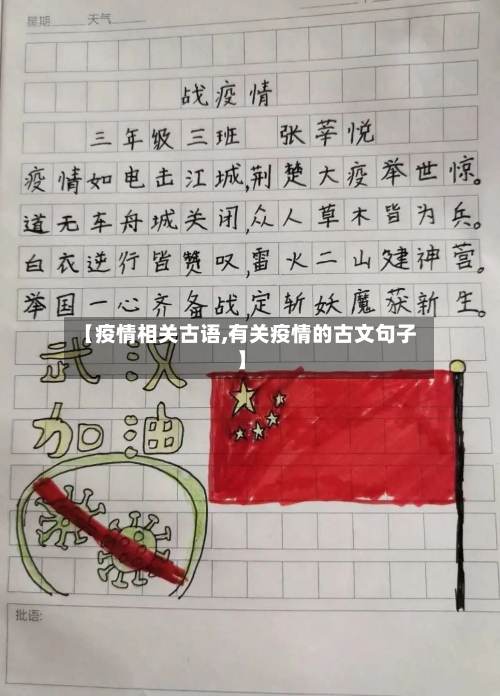 星期 天气
战疫情
三年级三班 张莘悦
疫情如电击江城,荆楚大疫举世惊。
道无车舟城关闭,众人草木皆为兵。
白衣逆行皆赞叹,雷火二山建神营。
举国一心齐备战,定斩妖魔获新生。
【疫情相关古语,有关疫情的古文句子
】
武汉
加油
批语: